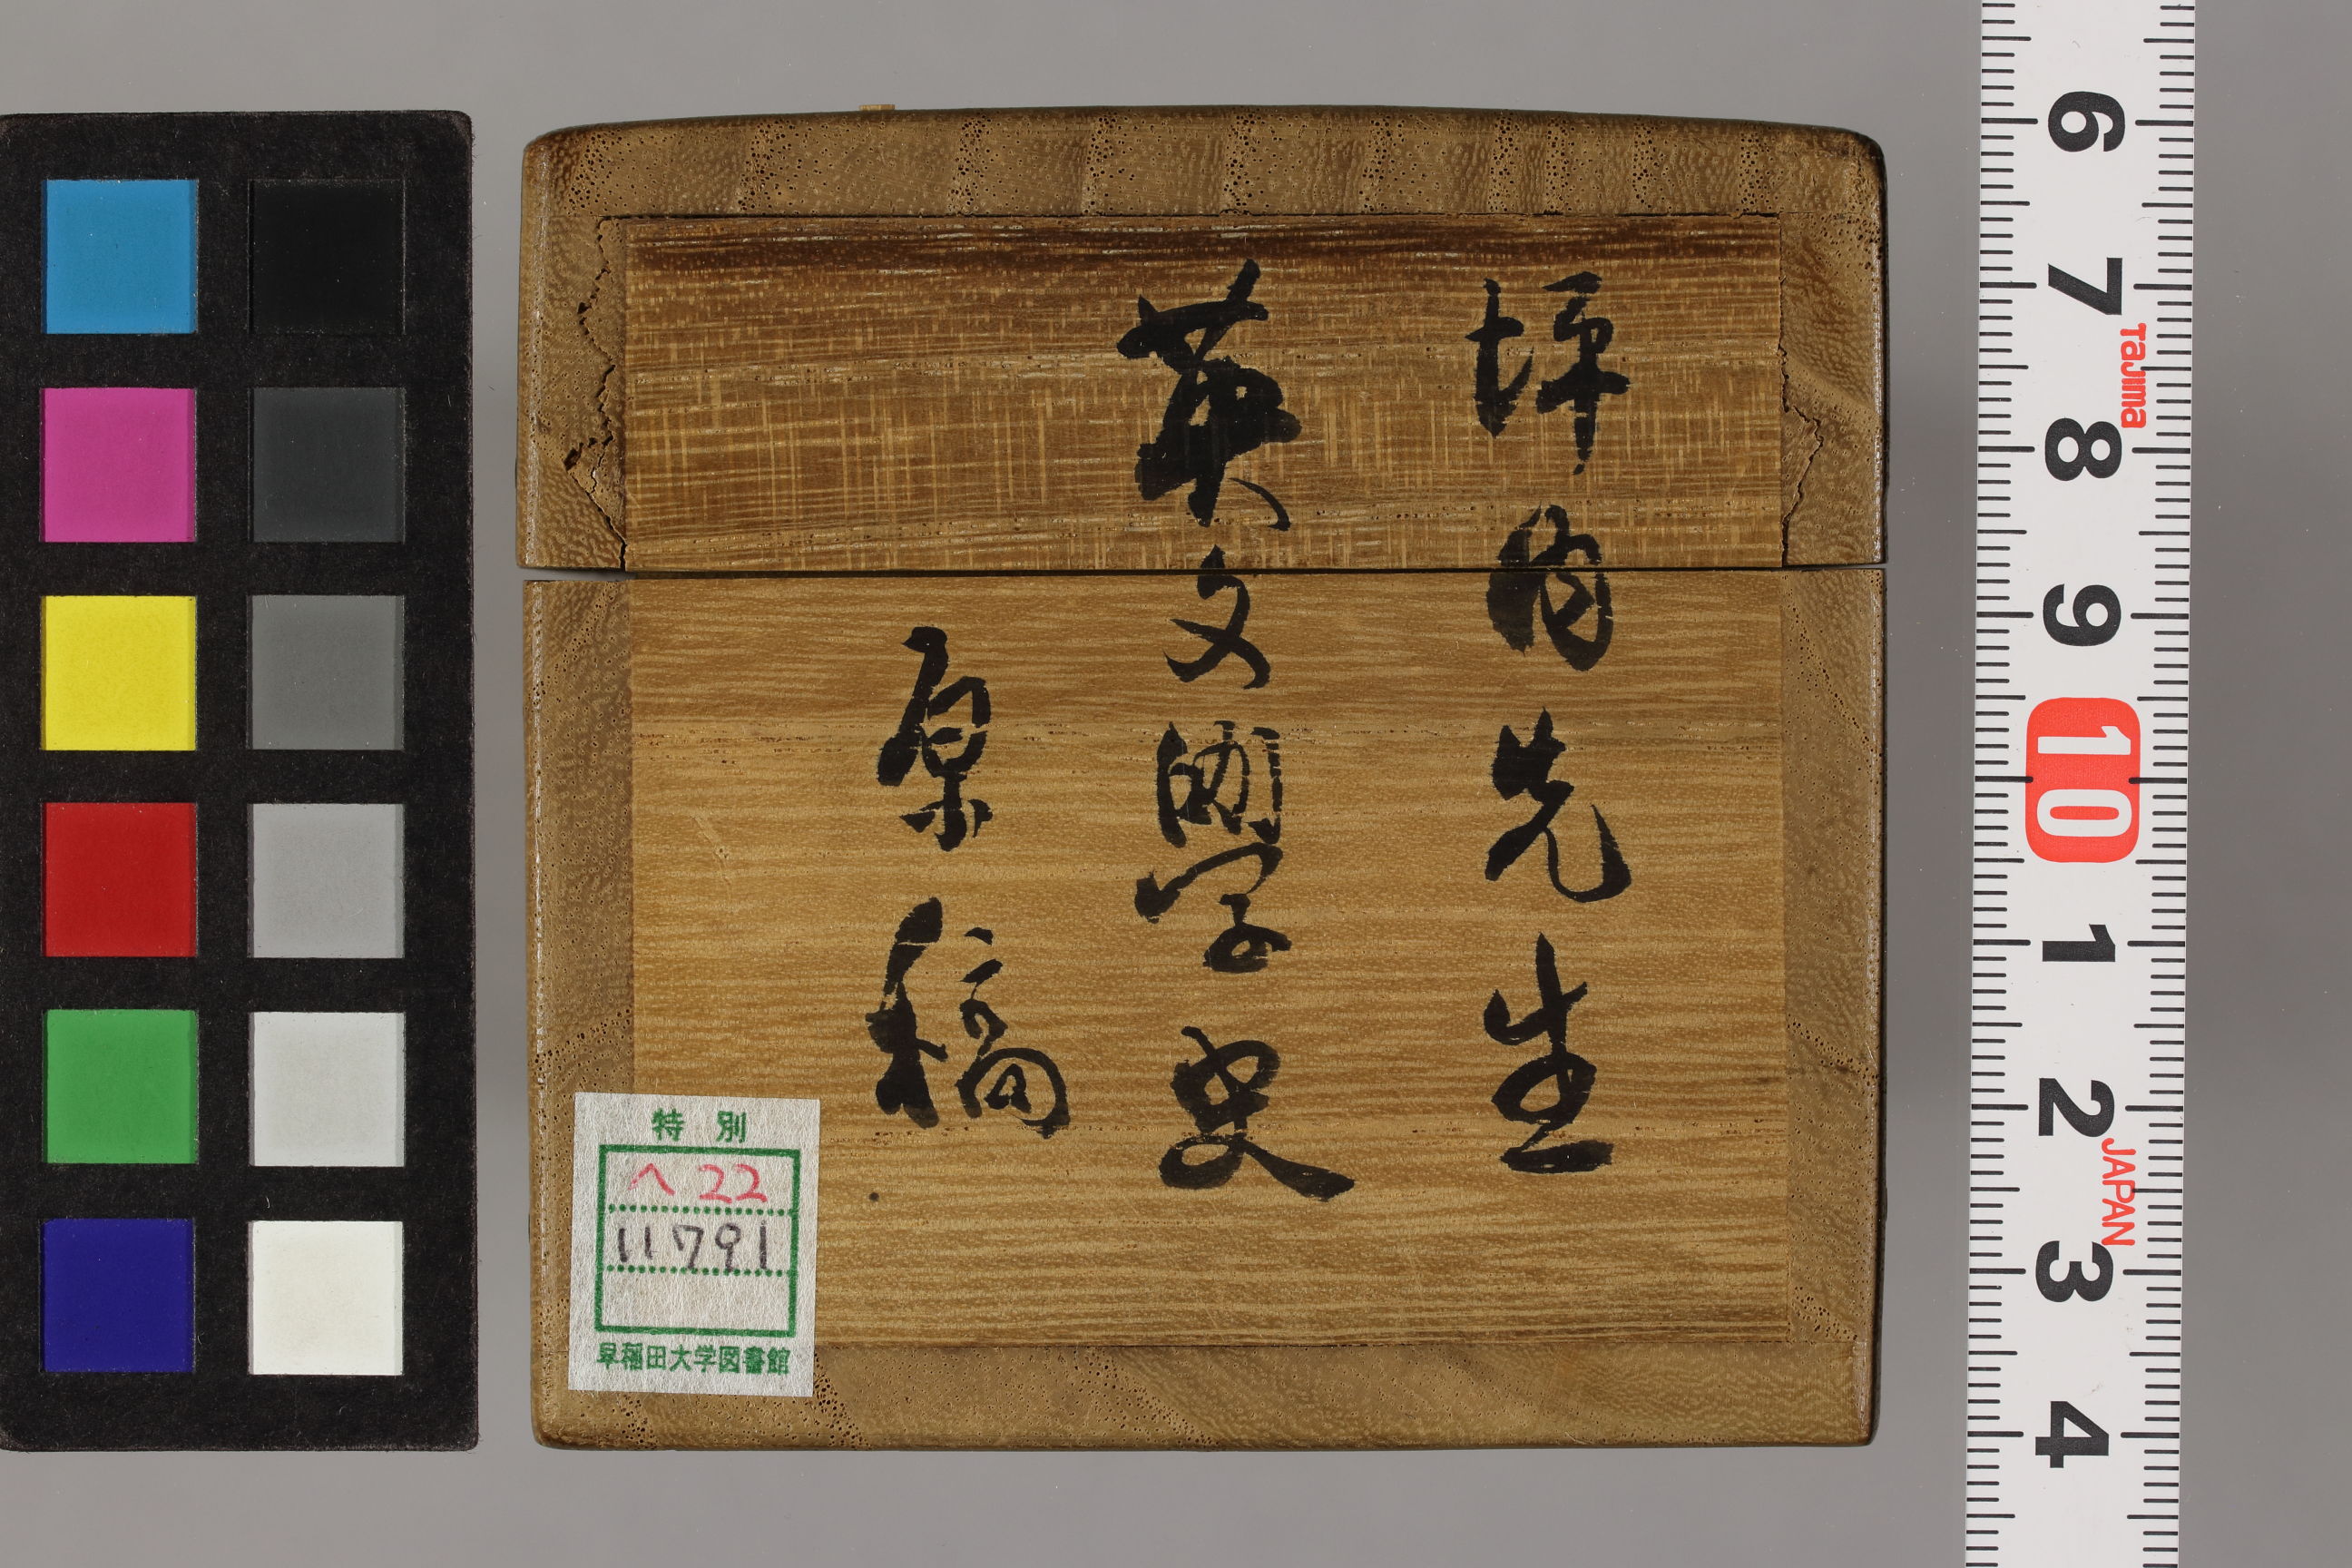 坪内先生
英文學史
原稿
特別
ヘ 22
11791
早稲田大学図書館
6 7 8 9 10 1 2 3 4
Tajima
JAPAN